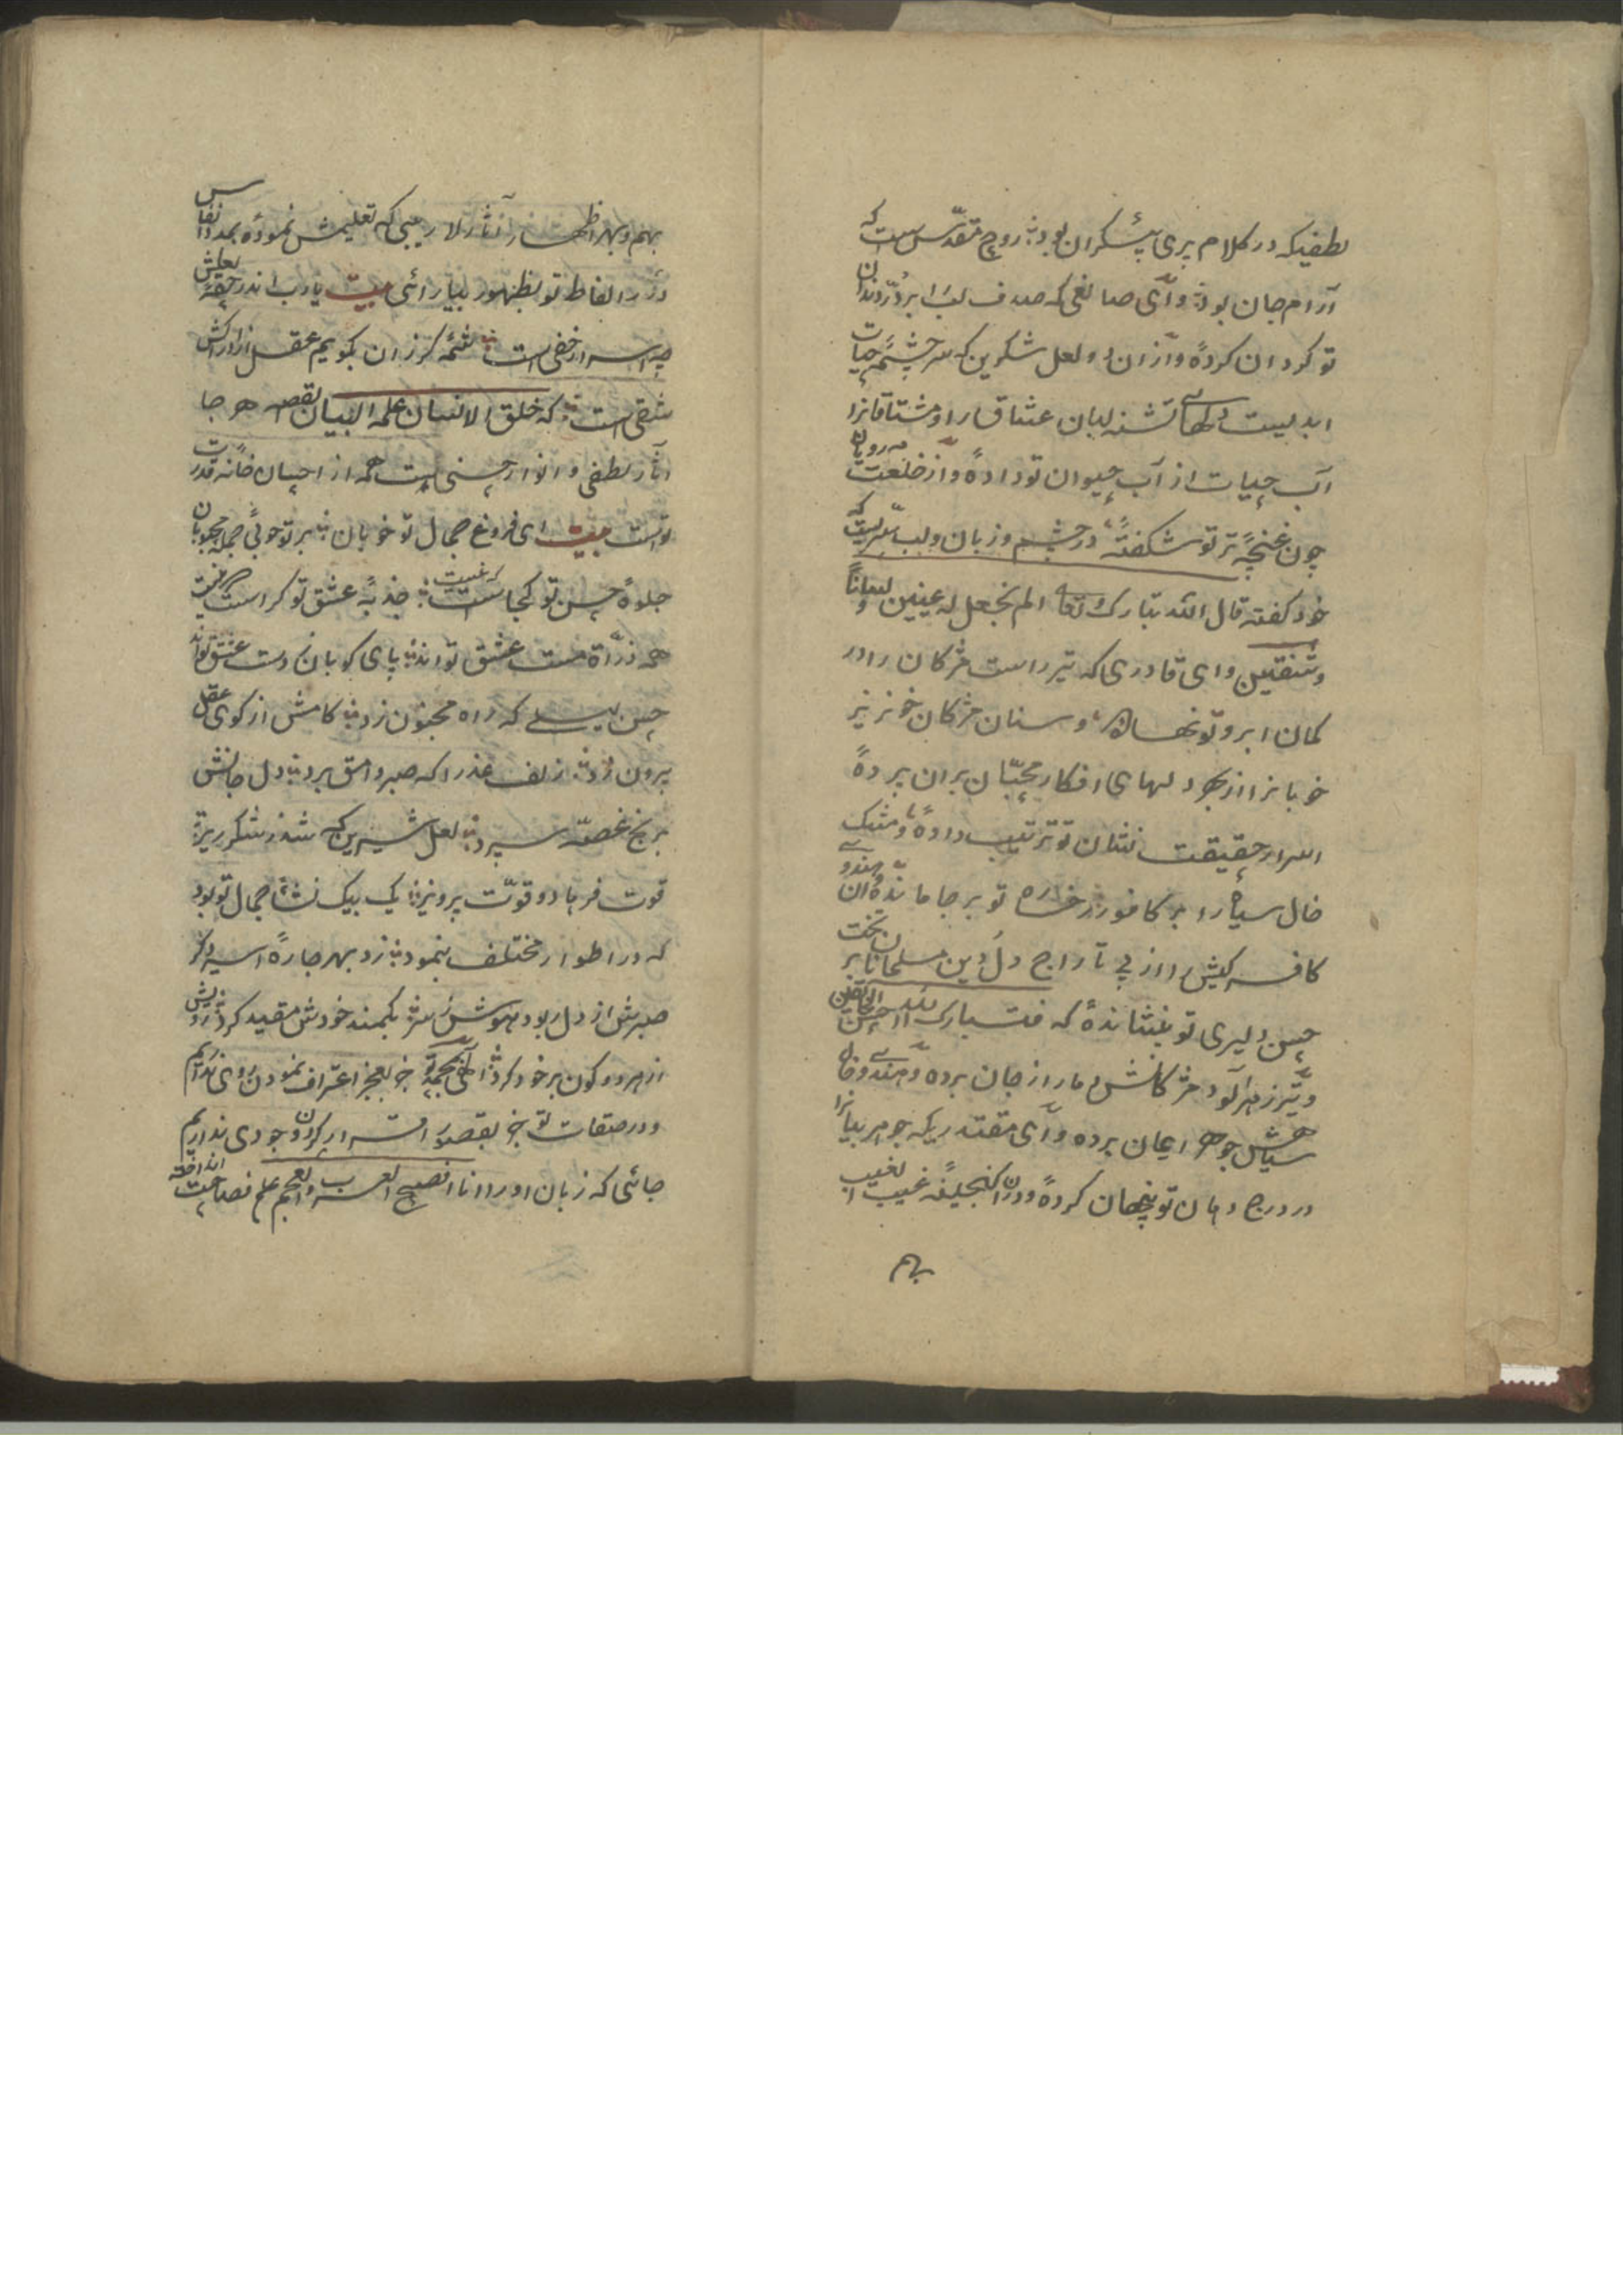 لطفیکه در کلام پری پیکران بود روح مقدس ست که
آرام جان بود وای صانعی که صدف لب را پر در دندان
تو کردان کرده و از ان دو لعل شکرین که سر چشمه حیات
ابدیست دلهای تشنه لبان عشاق را و مشتاقانرا
آب حیات از آب حیوان تو داده و از خلعت مه رویان
چون غنچه تر تو شکفته در چشم و زبان و لب سریست که
خود گفته قال الله تبارک تعالی الم نجعل له عینین و لسانا
و شفتین و ای قادری که تیر راست مژکان را در
کمان ابرو تو نهاده و سنان مژکان خونریز
خوبانرا از بهر دلهای افکار محبان بران برده
اسرار حقیقت نشان تو ترتیب داده و مشک
خال سیاه را بر کافور رخساره تو بر جا مانده و هندوی
کافر کیش را از پی تاراج دل و دین مسلمانان بر تخت
حسن دلبری تو بنشانده که فتبارک الله احسن الخالقین
و تیر زهر آلود مژکانش مار از جان برده و هندو خال
سیاهش جوهر ایمان برده و ای مقتدریکه جواهر بیانرا
در درج دهان تو پنهان کرده و در ان کنجینه غیب الغیب
بهم
بهم و بهر اظهار آثار لا ریبی که تعلیمش نموده بمدد انفاس
درر الفاظ تو بظهور بیارائی بیت یارب اندر حقه لعلش
چه اسرار خفی است شمه کر زان بکویم عقل از ادراکش
شقی است که خلق الانسان علمه البیان لقصه هر جا
آثار لطفی و انوار حسنی است همه از احسان خانه قدرت
تو است بیت ای فروغ جمال تو خوبان پرتو خوبی جمله محبوبان
جلوه حسن تو کجاست که نیست جذبه عشق تو کراست که نیست
همه ذرات مست عشق تو اند پای کوبان دست عشق تو اند
حسن لیلی که راه مجنون زد کامش از کوی عقل
بیرون زد زلف عذرا که صبر وامق برد دل و جانش
برنج غصه سپرد لعل شیرین که شد شکر ریز
قوت فرهاد و قوت پرویز یک بیک نشأ جمال تو بود
که در اطوار مختلف بنمود زد بهر جا ره اسیر دکر
صبرش از دل ربود هوش ز سر بکمند خودش مقید کرد رویش
از هر دو کون بر خود کرد الهی بمحمد تو جز بعجز اعتراف نمودن روی نداریم
و در صفات تو جز بقصور اقرار کردن وجودی نداریم
جائی که زبان آور انا افصح العرب والعجم علم فصاحت انداخته